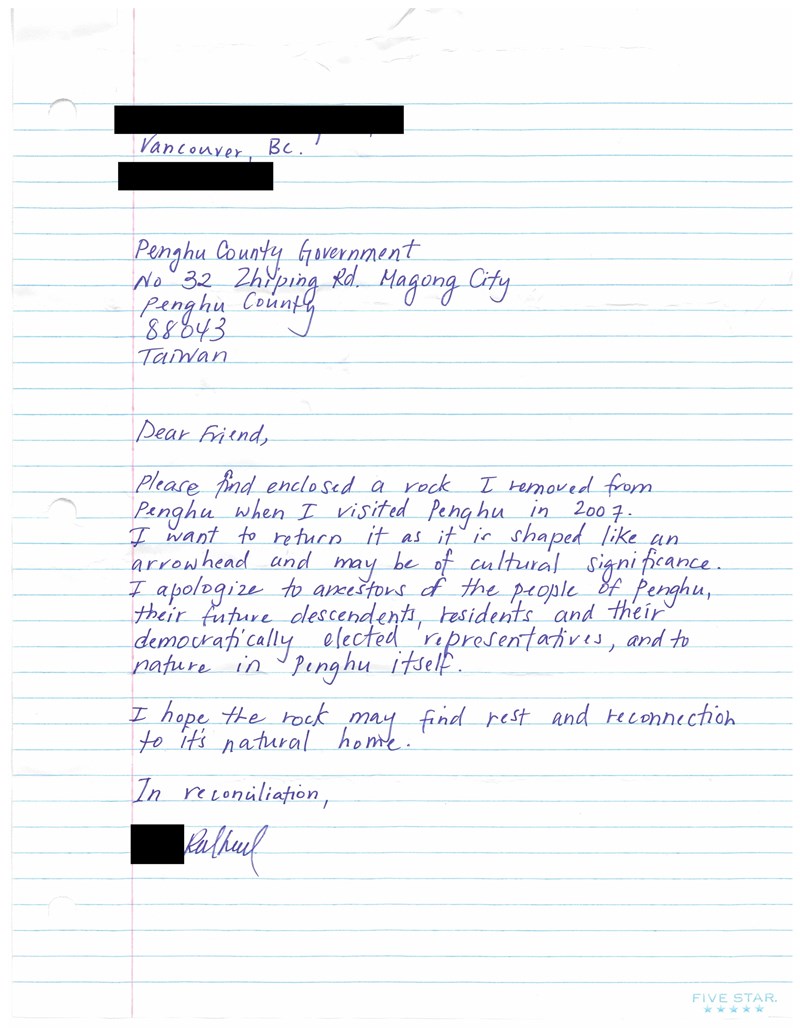 Vancouver, BC.
Penghu County Government
No 32 Zhiping Rd. Magong City
Penghu County
88043
Taiwan
Dear Friend,
Please find enclosed a rock I removed from
Penghu when I visited Penghu in 2007.
I want to return it as it is shaped like an
arrowhead and may be of cultural significance.
I apologize to ancestors of the people of Penghu,
their future descendents, residents and their
democratically elected representatives, and to
nature in Penghu itself.
I hope the rock may find rest and reconnection
to it's natural home.
In reconciliation,
FIVE STAR.